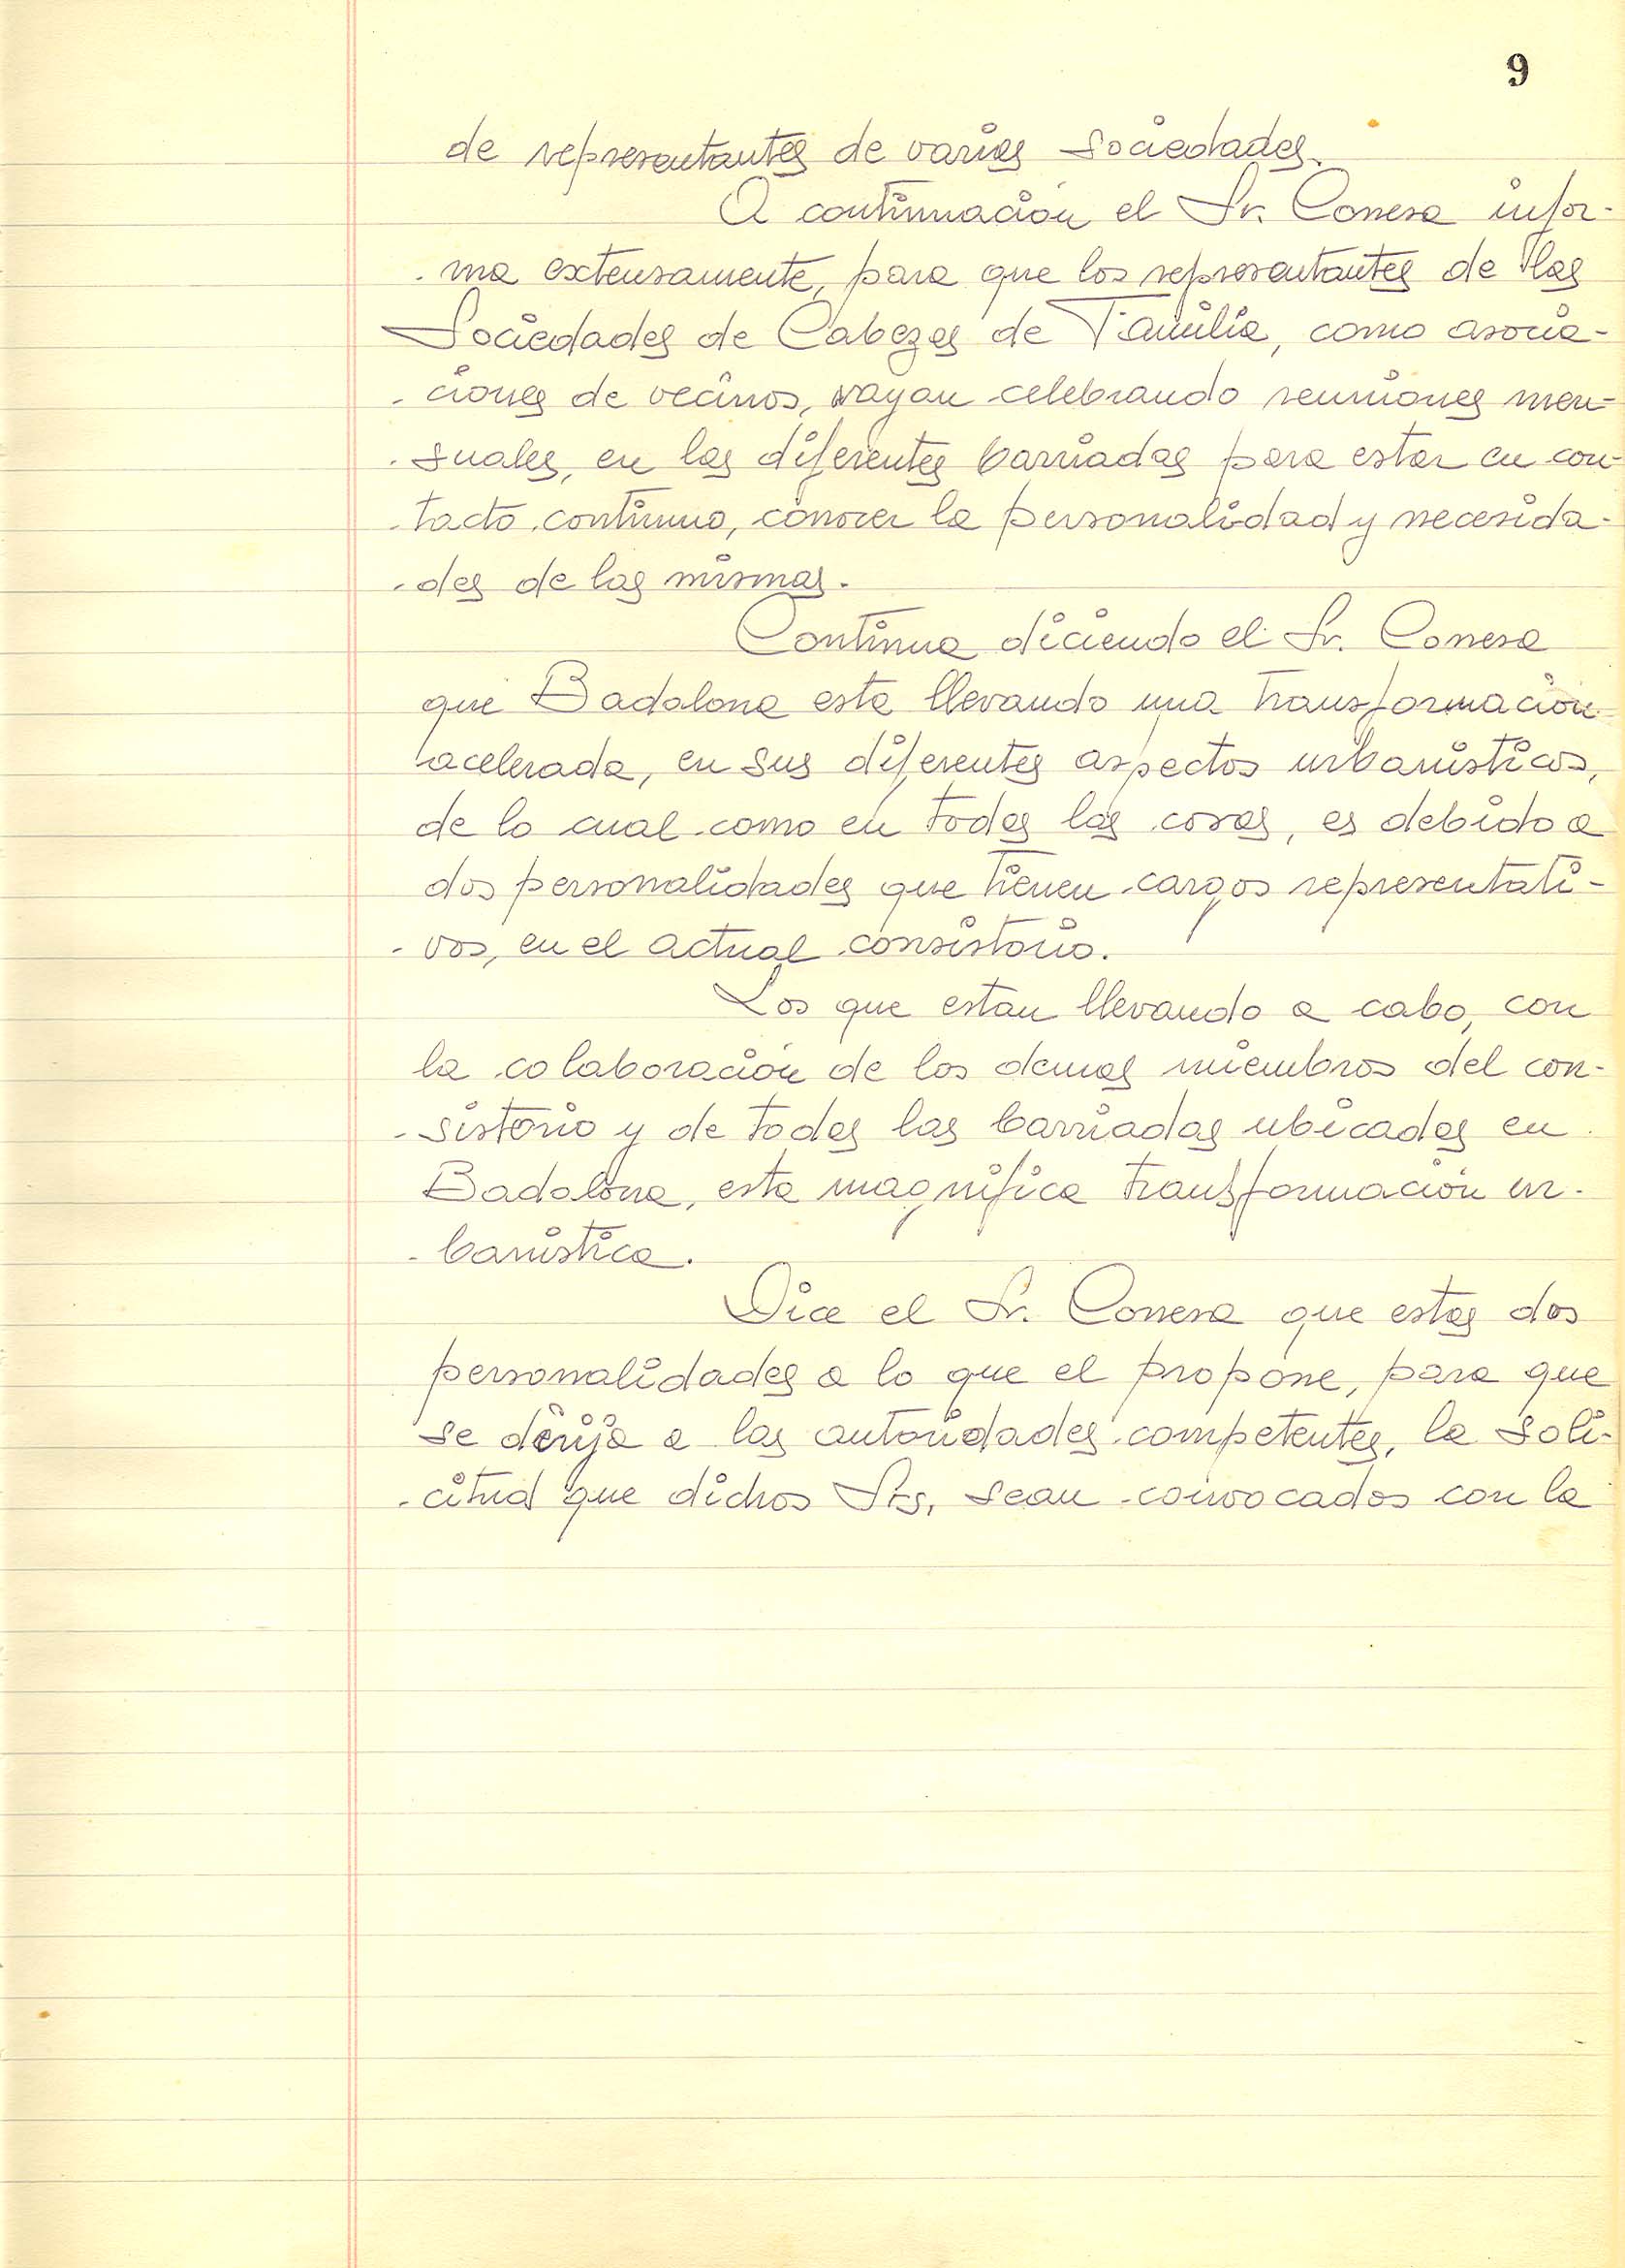 9
de representantes de varias Sociedades.
A continuación el Sr. Conesa infor-
-ma extensamente, para que los representantes de las
Sociedades de Cabezas de Familia, como asocia-
-ciones de vecinos, vayan celebrando reuniones men-
-suales, en las diferentes barriadas para estar en con-
-tacto continuo, conocer la personalidad y necesida-
-des de las mismas.
Continua diciendo el Sr. Conesa
que Badalona esta llevando una transformación
acelerada, en sus diferentes aspectos urbanisticos,
de lo cual como en todas las cosas, es debido a
dos personalidades que tienen cargos representati-
-vos, en el actual consistorio.
Los que estan llevando a cabo, con
la colaboración de los demas miembros del con-
-sistorio y de todas las barriadas ubicadas en
Badalona, esta magnifica transformación ur-
-banistica.
Dice el Sr. Conesa que estas dos
personalidades a lo que el propone, para que
se dirija a las autoridades competentes, la soli-
-citud que dichos Srs, sean convocados con la